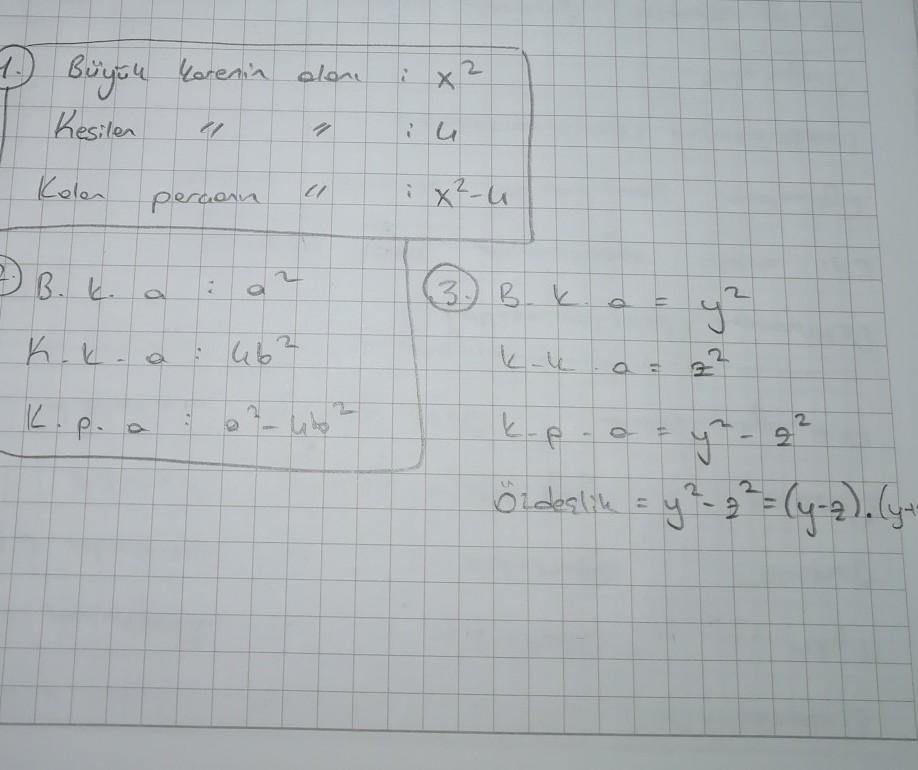 1. Büyük karenin alanı : x²
Kesilen " " : 4
Kalan parçanın " : x²-4
2. B. k. a : a²
K. k. a : 4b²
K. p. a : a²-4b²
3. B. k. a = y²
k. k. a = z²
k. p. a = y² - z²
Özdeşlik = y² - z² = (y-z).(y+